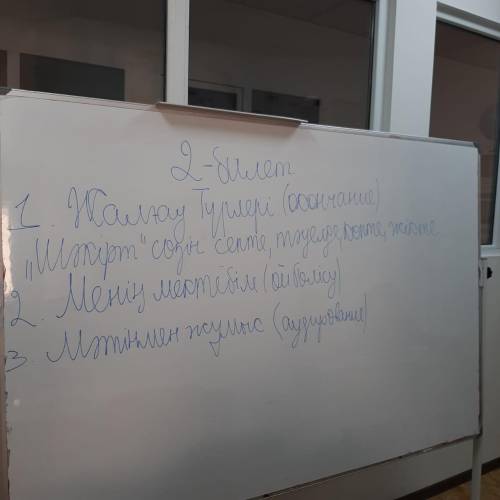 2-билет
1. Жалғау түрлері (окончание)
"Шәкірт" сөзін септе, тәуелде, көпте, жікте
2. Менің мектебім (ой бөлісу)
3 Мәтінмен жұмыс (аудирование)